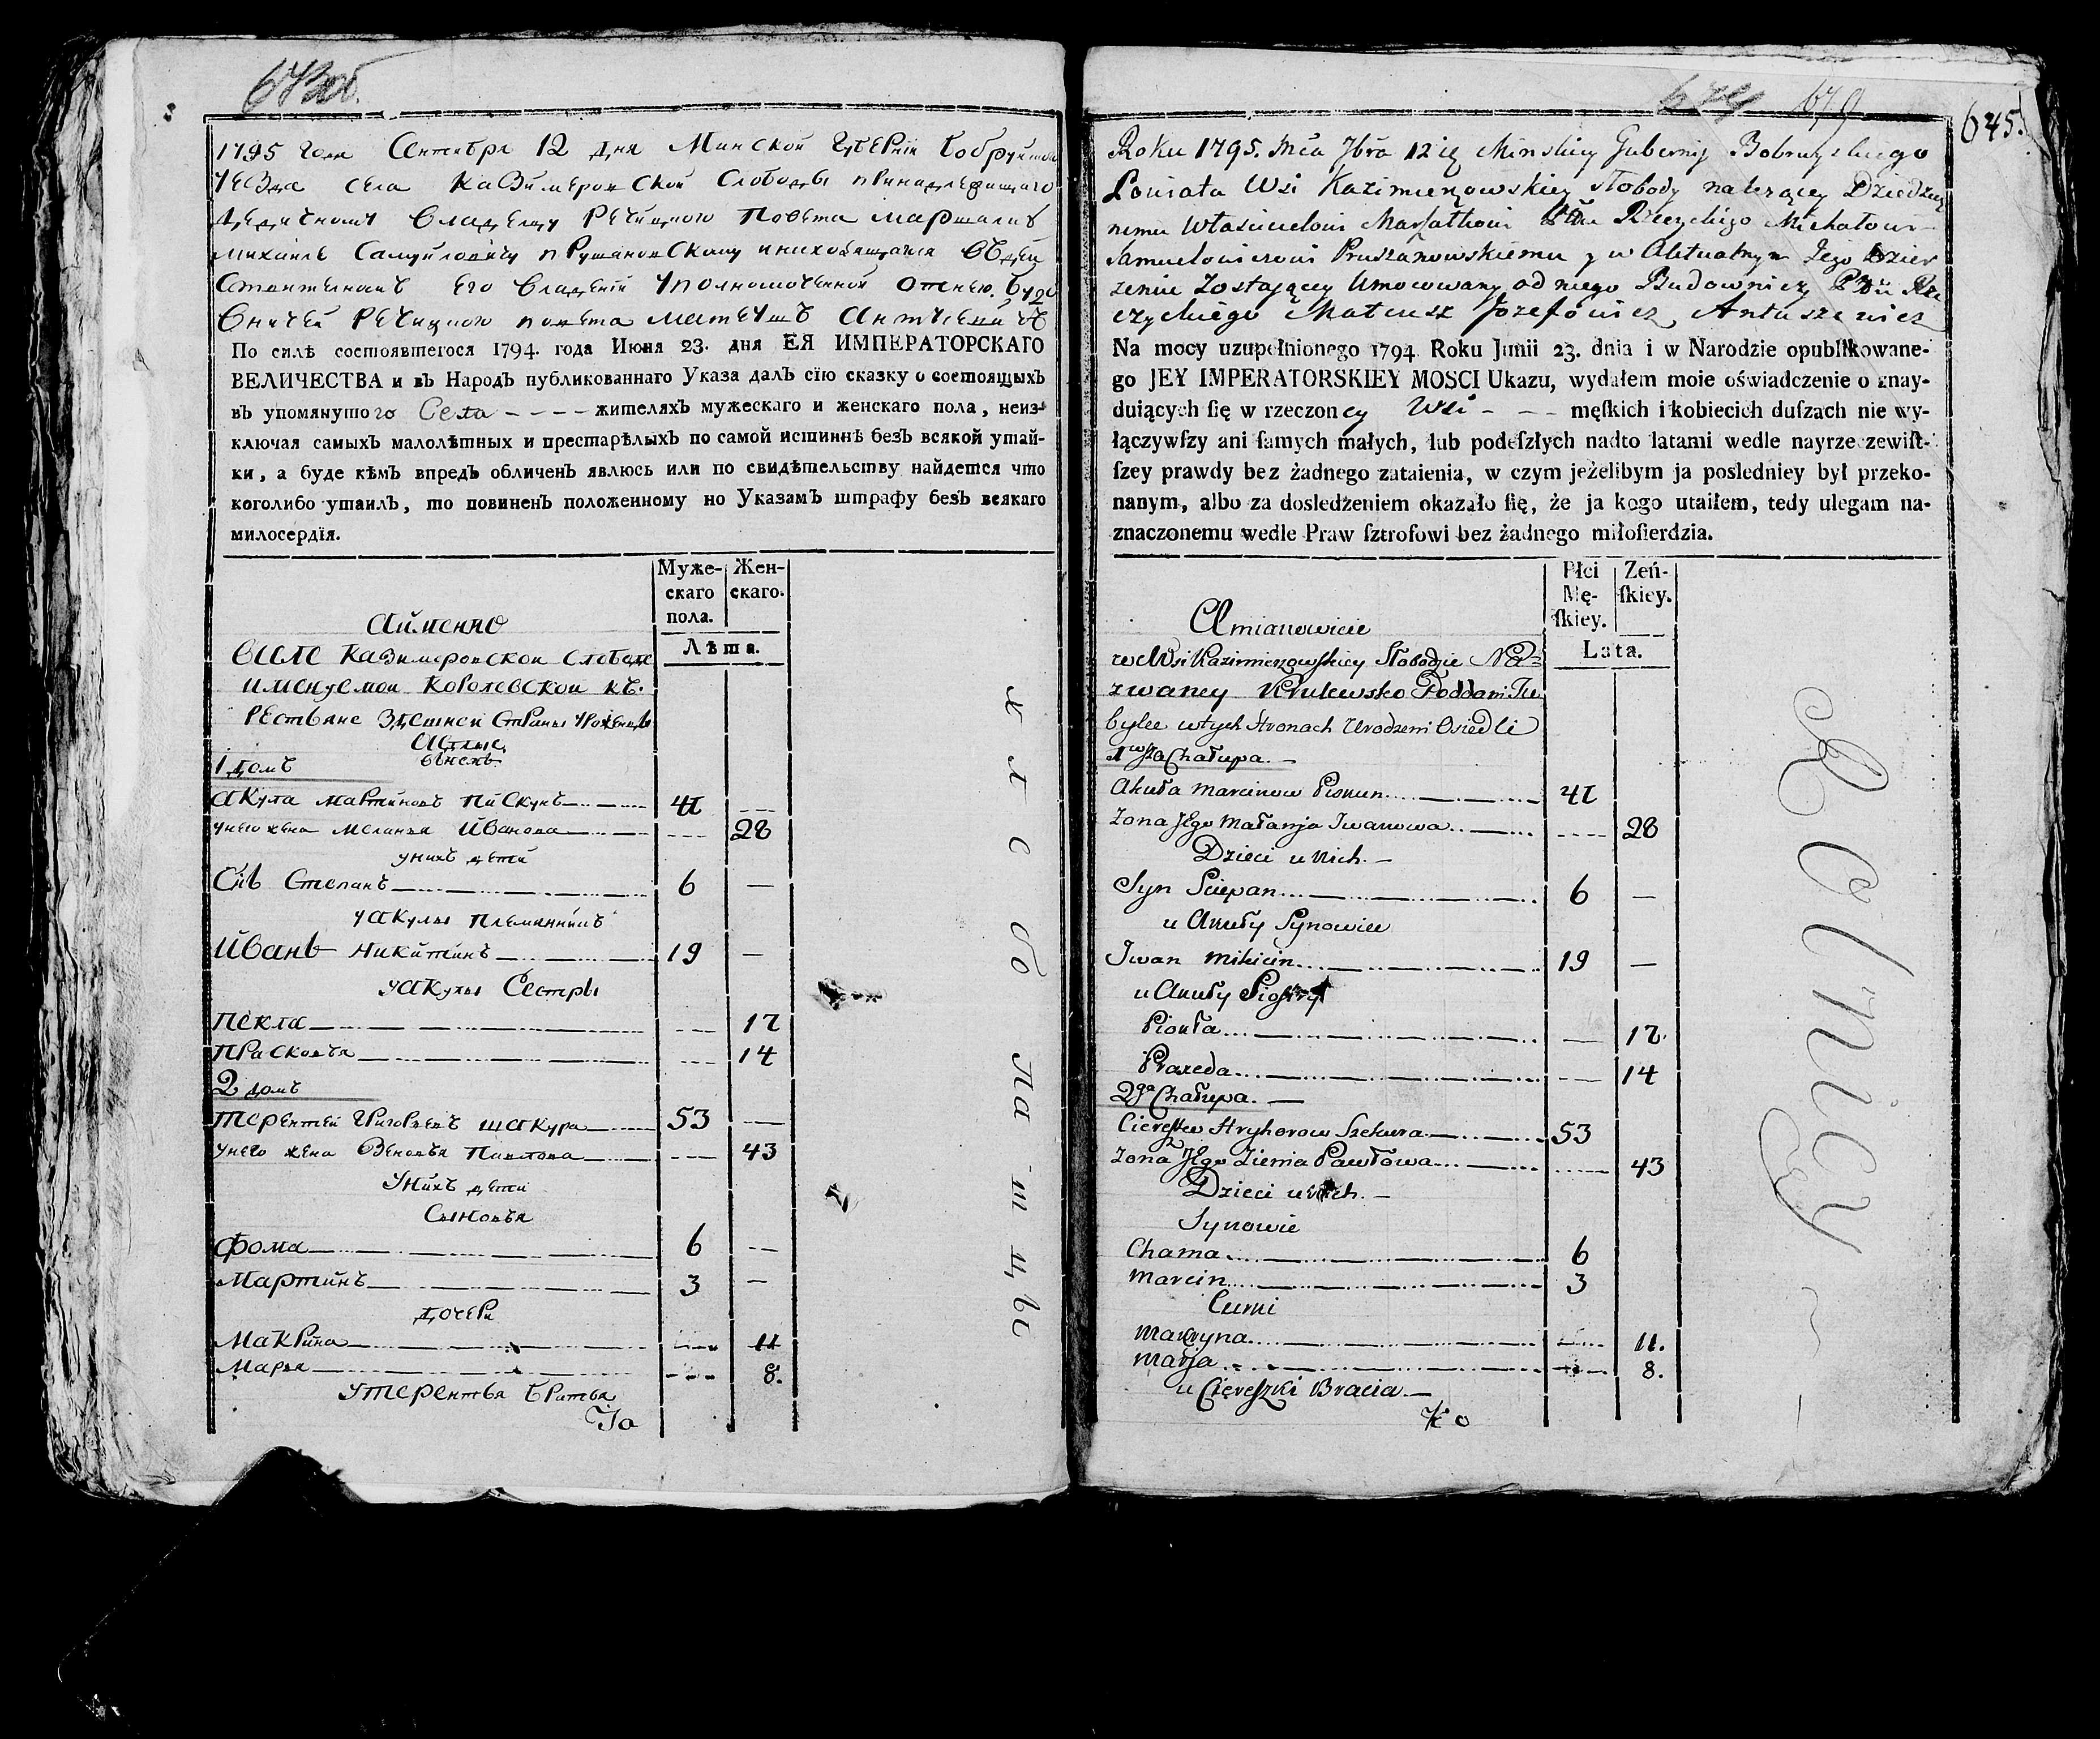 1795 года Сентября 12 дня Минской Губерніи Бобруйскаго
уезда села Казимеровской Слободы принадлежащаго
дедичному владелцу Речицкого Повета маршалку
михаилу Самуйловичу прушановскому
его владеніи уполномоченной от него Будо
вничей Речицкого повета матеушъ
По силѣ состоявшегося 1794. года Июня 23. дня ЕЯ ИМПЕРАТОРСКАГО
ВЕЛИЧЕСТВА и въ Народъ публикованнаго Указа далъ сїю сказку о состоящыхъ
въ упомянутого Села - - - - жителяхъ мужескаго и женскаго пола, неиз-
ключая самыхъ малолѣтных и престарѣлыхъ по самой истиннѣ безъ всякой утай-
ки, а буде кѣмъ впредь обличенъ явлюсь или по свидѣтельству найдется что
коголибо утаилъ, то повиненъ положенному по Указамъ штрафу безъ всякаго
милосердїя.
Муже-скаго пола. Жен-скаго.
Аименно
Лѣта.
Вселе Казимеровской Слободе
именуемой Королевской
крестьяне здешней страны
1 домъ
Акула Мартиновъ Пискунъ 41
унего жена Меланья Иванова 28
унихъ дети
Снъ Степанъ 6 —
у Акулы племянникъ
Иванъ Никитинъ 19 —
у Акулы Сестры
Пекла 17
Прасковья 14
2 домъ
Терентей Григорьевъ шакура 53 —
унего жена Зеновья Павлова 43
Унихъ дети
Сыновья
Фома 6
Мартинъ 3 —
дочери
Макрина 11
Марья 8.
у Терентья братья
хлебопашцы
674 679
645.
Roku 1795. Mca 7bra 12 Minskiey Gubernij Bobruyskiego
Powiata Wsi Kazimierzowskiey słobody należącey Dziedzicz
nemu Właścicielowi Marszałkowi Rzeczyckiego Michałowi
Samuelowiczowi Pruszanowskiemu y w Aktualnym Jego Dzier
żeniu Zostającey Umocowany od niego Budowniczy Rze
czyckiego Mateusz Jozefowicz Antuszewicz
Na mocy uzupełnionego 1794 Roku Junii 23. dnia i w Narodzie opublikowane-
go JEY IMPERATORSKIEY MOSCI Ukazu, wydałem moie oświadczenie o znay-
duiących ſię w rzeczoney Wsi - - - męſkich i kobiecich duſzach nie wy-
łączywſzy ani ſamych małych, lub podeſzłych nadto latami wedle nayrzeczewiſt-
ſzey prawdy bez żadnego zataienia, w czym jeżelibym ja posledniey był przeko-
nanym, albo za dosledzeniem okazało ſię, że ja kogo utaiłem, tedy ulegam na-
znaczonemu wedle Praw ſztrofowi bez żadnego miłoſierdzia.
Płci Mę-ſkiey. Zeń-ſkiey.
Amianowicie
Lata.
we Wsi Kazimierzowskiey Słobodzie Na
zwaney Krulewsko Poddani Tu
bylce wtych Stronach Urodzeni Osiedli
1wsza Chałupa. —
Akuła Marcinow Piskun 41
Zona Jego Małanja Iwanowa 28
Dzieci u nich. —
Syn Sciepan 6 —
u Akuły Synowiec
Iwan Mikicin 19 —
u Akuły Siostry
Piokła — 17.
Praxeda 14
2ga Chałupa. —
Ciereszko Hryhorow Szekura 53
Zona Jego Zienia Pawłowa 43
Dzieci u nich. —
Synowie
Chama 6
Marcin 3
Curki
Makryna 11.
Marja 8.
u Ciereszki Bracia —
Ko
Rolnicy